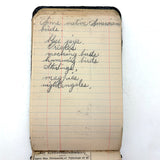 Some native American
birds.
Blue jays
orioles
mocking birds
humming birds
starlings
magpies
nightingales,